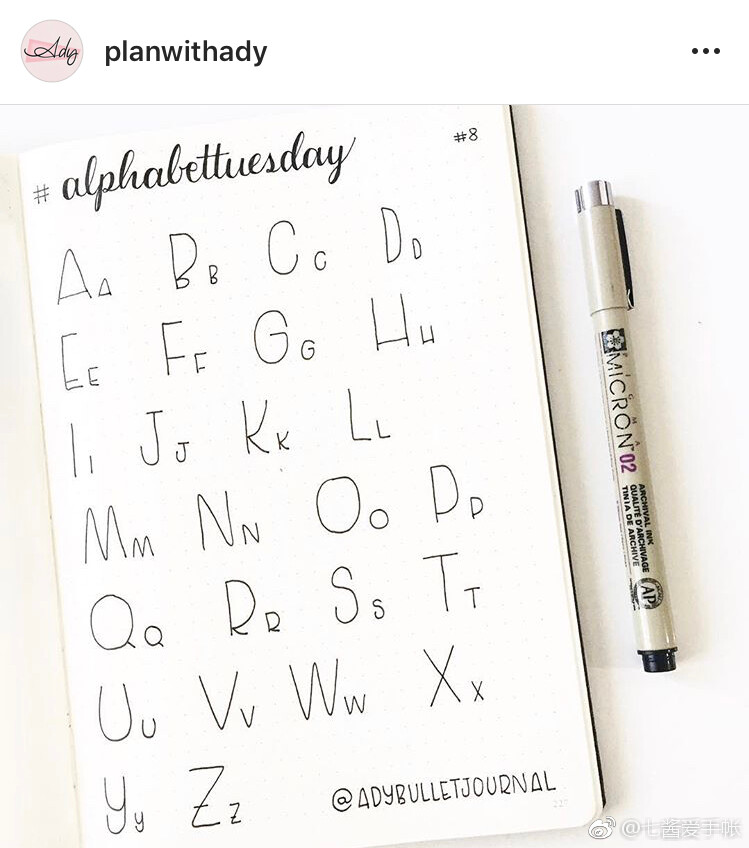 Ady planwithady
# alphabettuesday #8
Aa Bb Cc Dd
Ee Ff Gg Hh
Ii Jj Kk Ll
Mm Nn Oo Pp
Qq Rr Ss Tt
Uu Vv Ww Xx
Yy Zz
@ADYBULLETJOURNAL
227
PIGMA
MICRON™ 02
ARCHIVAL INK
QUALITÉ D'ARCHIVAGE
TINTA DE ARCHIVE
AP
@七酱爱手帐